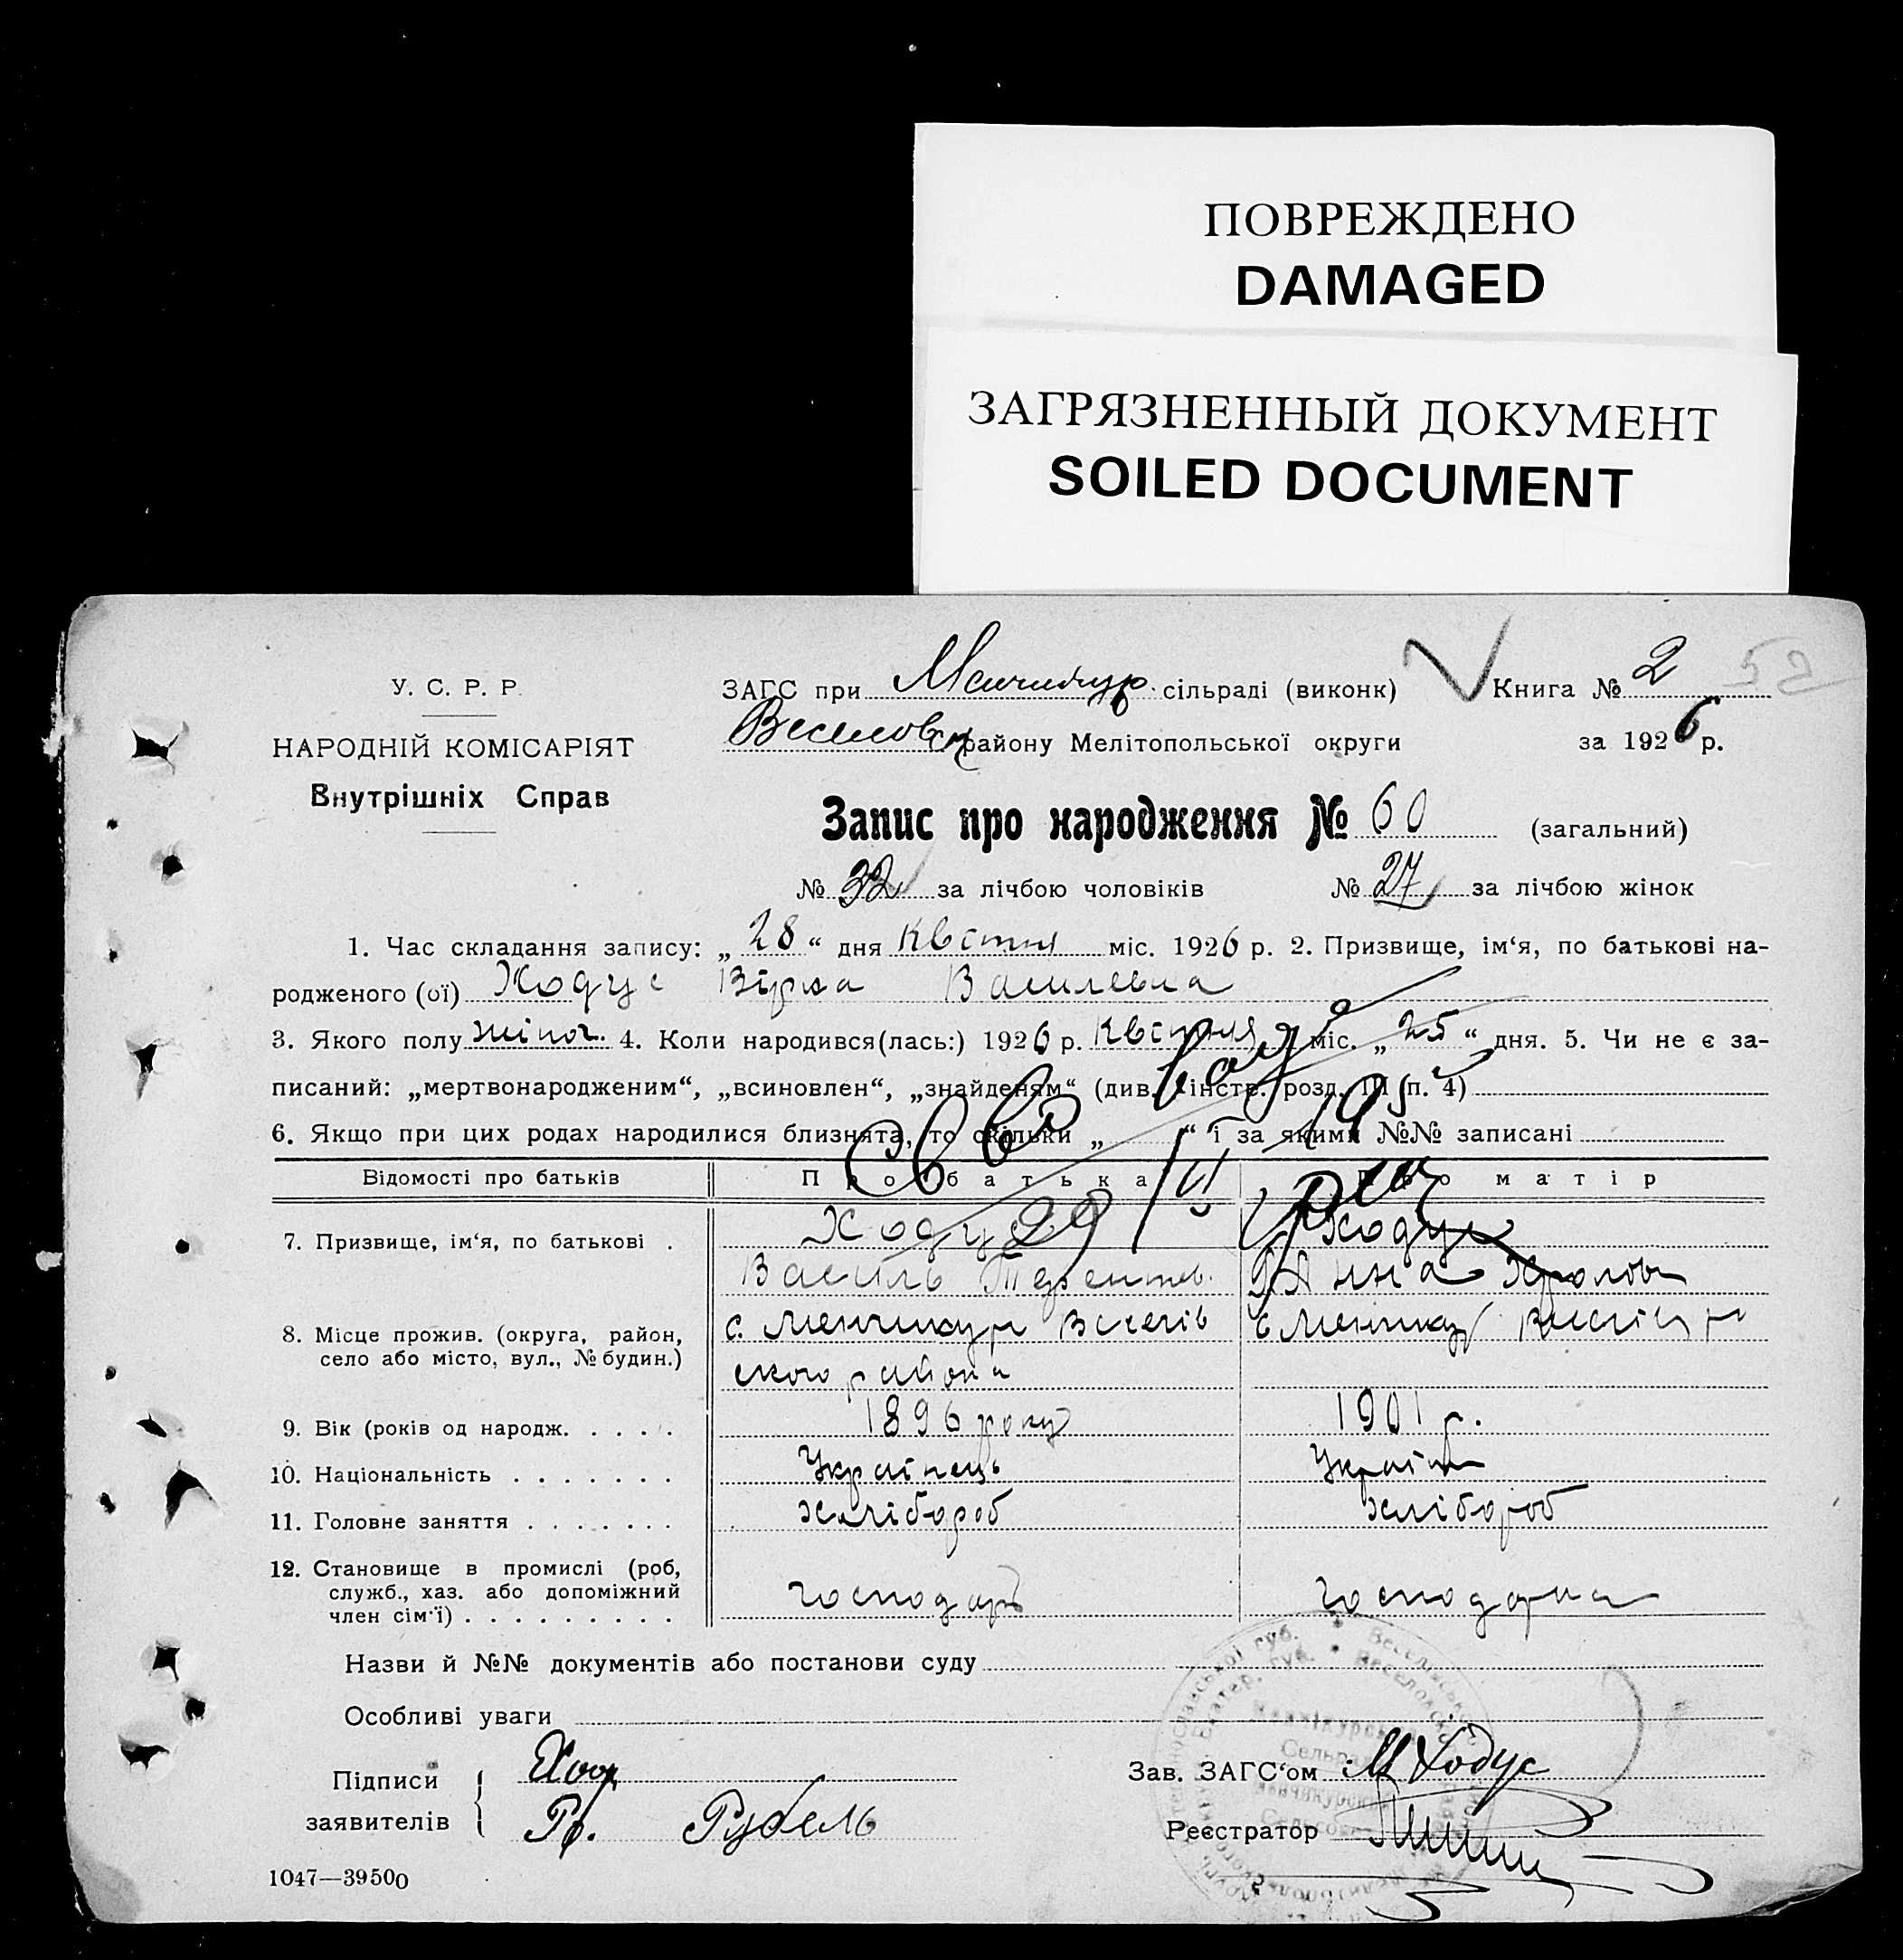 ПОВРЕЖДЕНО
DAMAGED
ЗАГРЯЗНЕННЫЙ ДОКУМЕНТ
SOILED DOCUMENT
У. С. Р. Р.
НАРОДНІЙ КОМІСАРІЯТ
Внутрішніх Справ
ЗАГС при Менчикур. сільраді (виконк) Книга № 2 52
Веселовск району Мелітопольської округи за 1926 р.
Запис про народження № 60 (загальний)
№ 32 за лічбою чоловіків № 27 за лічбою жінок
1. Час складання запису: „28“ дня Квітня міс. 1926 р. 2. Призвище, ім‘я, по батькові на-
родженого (ої) Ходус Вірка Василевна
3. Якого полу жіноч. 4. Коли народився(лась:) 1926 р. Квітня міс. „25“ дня. 5. Чи не є за-
писаний: „мертвонародженим“, „всиновлен“, „знайденям“ (див. інстр. розд. III п. 4)
6. Якщо при цих родах народилися близнята, то скільки „ “ і за якими №№ записані
Відомості про батьків Про батька Про матір
7. Призвище, ім‘я, по батькові . Ходус Ходус
Василь Терентев. Анна
8. Місце прожив. (округа, район, с. Менчикури Веселів с Менчикур
село або місто, вул., № будин.) ского района
9. Вік (років од народж. . . . . 1896 року 1901 р.
10. Національність . . . . . . . Українець Україн
11. Головне заняття . . . . . . . хлібороб хлібороб
12. Становище в промислі (роб,
служб., хаз. або допоміжний господарь господарка
член сім‘ї) . . . . . . . . .
Назви й №№ документів або постанови суду
Особливі уваги
Підписи Зав. ЗАГС‘ом М Ходус
заявителів Рубель Реєстратор
1047—39500